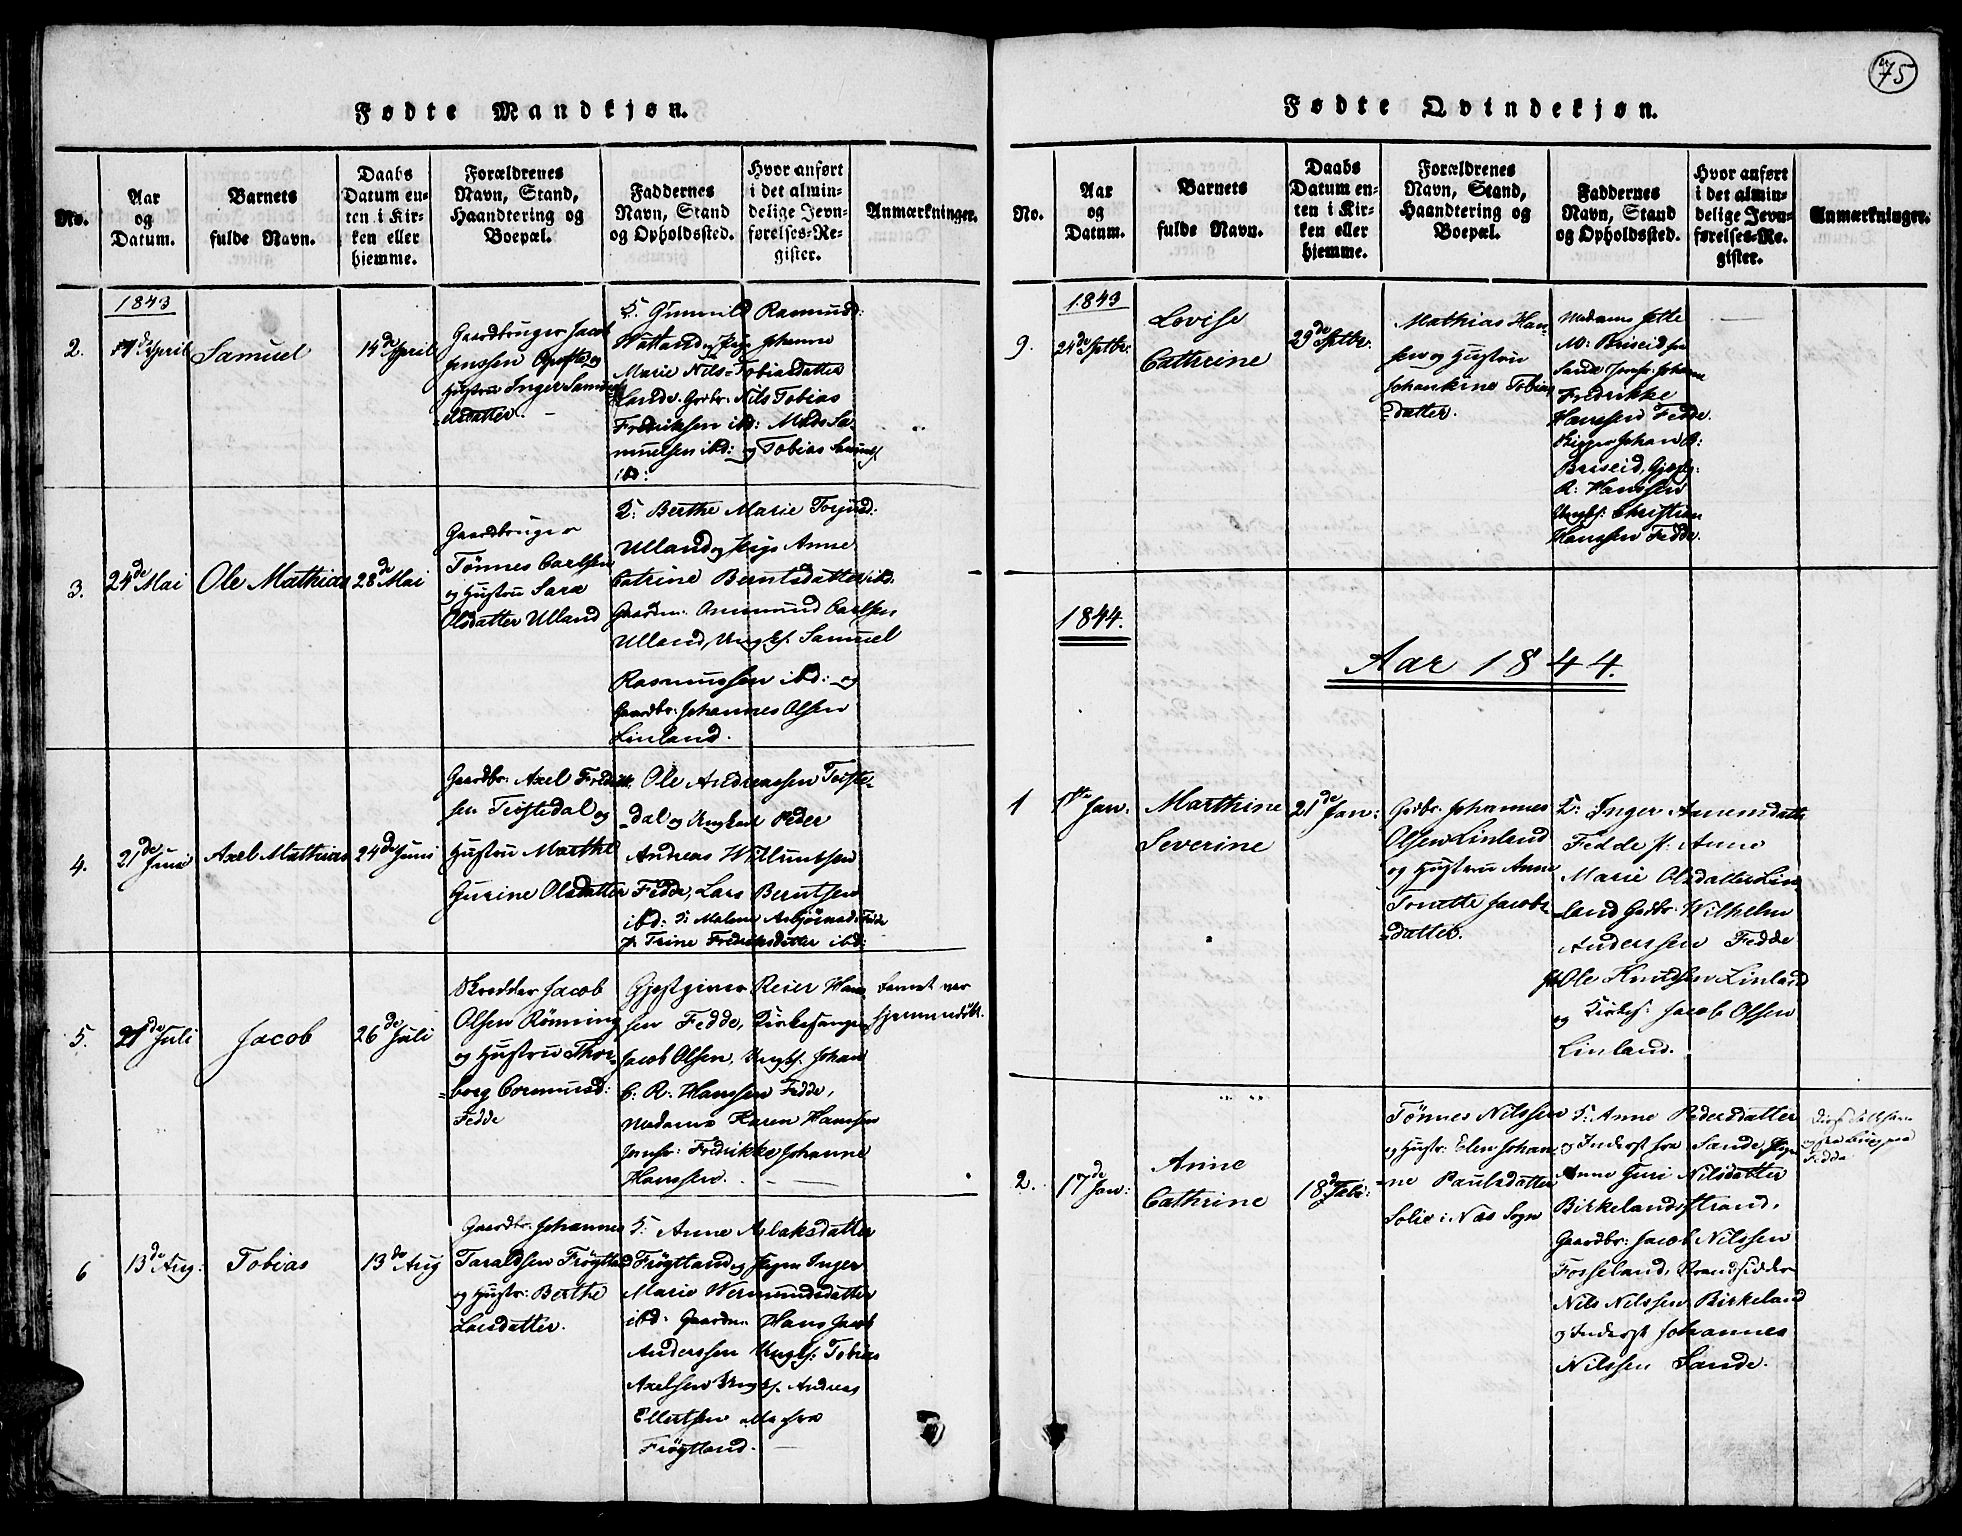 Fødte Mandkjøn.
No.
Aar
og
Datum.
Barnets
fulde Navn.
Daabs
Datum en-
ten i Kir-
ken eller
hjemme.
Forældrenes
Navn, Stand,
Haandtering og
Boepæl.
Faddernes
Navn, Stand
og Opholdssted.
Hvor anført
i det almin-
delige Jevn-
førelses-Re-
gister.
Anmærkninger.
1843
2.
de April
Samuel
14de April
Gaardbruger Jacob
Jenssen og
Hustru Inger Samu-
elsdatter.
Q. Gunnild Rasmusd:
og Pige Johanne
Marie Nils-Tobiasdatter
Sande. Grdbr: Nils Tobias
Fredriksen ibd: Mads Sa-
muelsen ibd: og Tobias Samuels.
ibd:
3.
24de Mai
Ole Mathias
28de Mai
Gaardbruger
Tønnes Carlsen
og Hustru Sara
Olsdatter Ulland
Q: Berthe Marie Torjusd:
Ulland og Pige Anne
Catrine Berntsdatter ibd.
Gaardm: Ommund Carlsen
Ulland, Ungks. Samuel
Rasmussen ibd: og
Gaardbr: Johannes Olsen
Linland.
4.
21de Juni
Axel Mathias
24de Juni
Gaardbr: Axel Fredrik-
sen Teistedal og
Hustru Marthe
Gurine Olsdatter
Ole Andreassen Teiste-
dal og Ungkarl Peder
Andreas Willumsen
Fedde, Lars Berntsen
ibd: Q: Malene Asbjørnsd: Fedde
P: Trine Fredriksdatter ibd:
5.
21de Juli
Jacob
26de Juli
Skredder Jacob
Olsen Rønning
og Hustru Thor-
borg Gormunsd:
Fedde
Gjestgiver Reier Han-
sen Fedde, Kirkesanger
Jacob Olsen, Ungks. Johan
C. R. Hanssen Fedde,
Madame Karen Hanssen
Jomfr: Fredrikke Johanne
Hanssen.
Barnet var
hjemmedøbt.
6
13de Aug:
Tobias
13de Aug
Gaardbr: Johannes
Taraldsen Frøytland
og Hustr: Berthe
Larsdatter.
Q: Anne Aslaksdatter
Frøytland og Pigen Inger
Marie Wermundsdatter
ibd: Gaardm. Hans Jacob
Anderssen Ungks: Tobias
Axelsen Ungks. Andreas
Ellertsen alle fra
Frøytland.
75
Fødte Qvindekjøn.
No.
Aar
og
Datum.
Barnets
fulde Navn.
Daabs
Datum en-
ten i Kir-
ken eller
hjemme.
Forældrenes
Navn, Stand,
Haandtering og
Boepæl.
Faddernes
Navn, Stand
og Opholdssted.
Hvor anført
i det almin-
delige Jevn-
førelses-Re-
gister.
Anmærkninger.
1843
9.
24de Sptbr:
Lovise
Cathrine
29de Sptbr.
Mathias Han-
sen og Hustru
Johankine Tobias-
datter.
Madame Jette
M: Briseid fra
Sande Jomfr: Johanne
Fredrikke
Hanssen Fedde.
Skipper Johan A:
Briseid, Gjestg:
R: Hanssen
Ungks: Christian
Hanssen Fedde.
1844.
Aar 1844.
1
1ste Jan:
Marthine
Severine
21de Jan:
Grdbr: Johannes
Olsen Linland
og Hustru Anne
Tonette Jacobs-
datter.
Q: Inger Anensdatter
Fedde P: Anne
Marie Olsdatter Lin-
land Grdbr: Wilhelm
Anderssen Fedde
Ole Knudsen Linland
og Kirkes: Jacob Olsen
Linland.
2.
17de Jan:
Anne
Cathrine
18de Febr:
Tønnes Nilssen
og Hustr: Elen Johan-
ne Paulsdatter
Solie i Næs Sogn
Q: Anne Pedersdatter
og Inderst fra Sande, Pigen
Anne Guri Nilsdatter
Birkelandsstrand,
Gaardbr: Jacob Nilssen
Fosseland, Strandsidder
Nils Nilssen Birkeland
og Inderst Johannes
Nilssen Sande.
Fedde